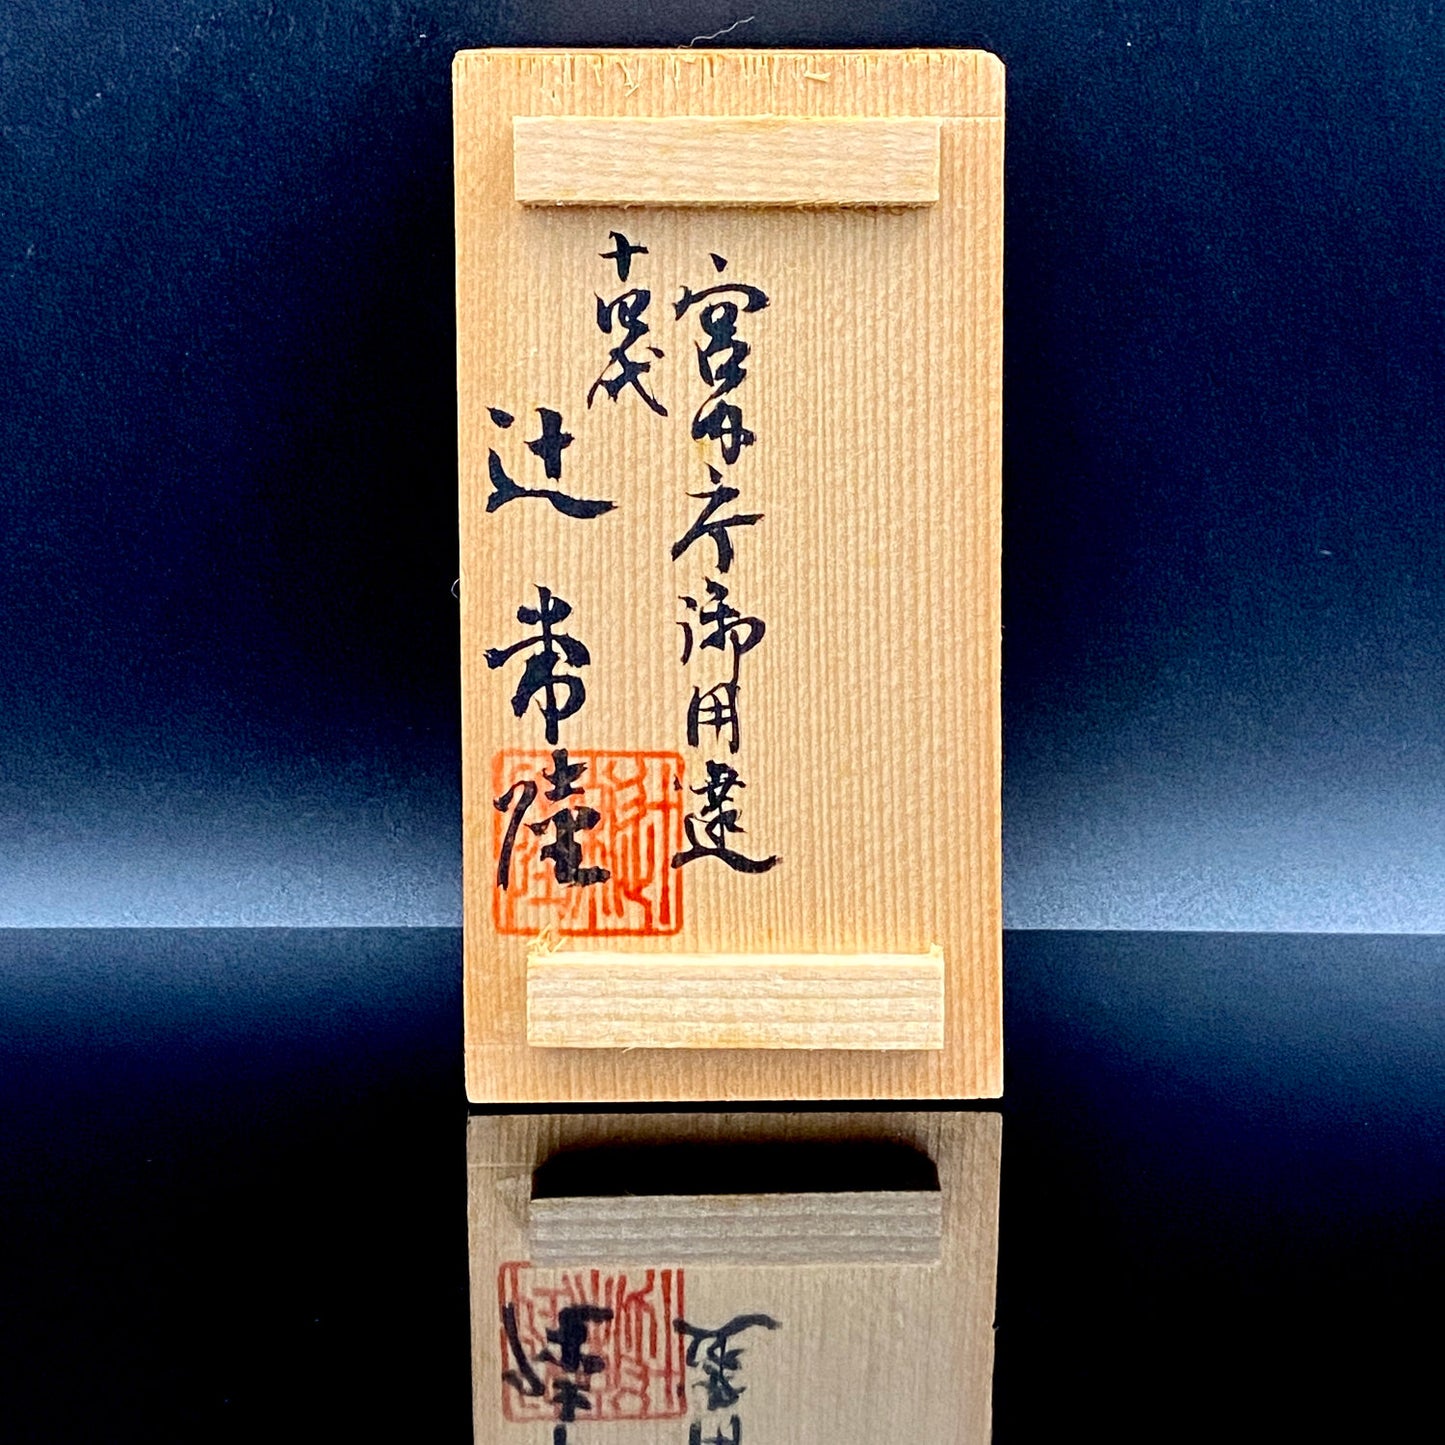 宮内庁御用達
十四代
辻 常陸